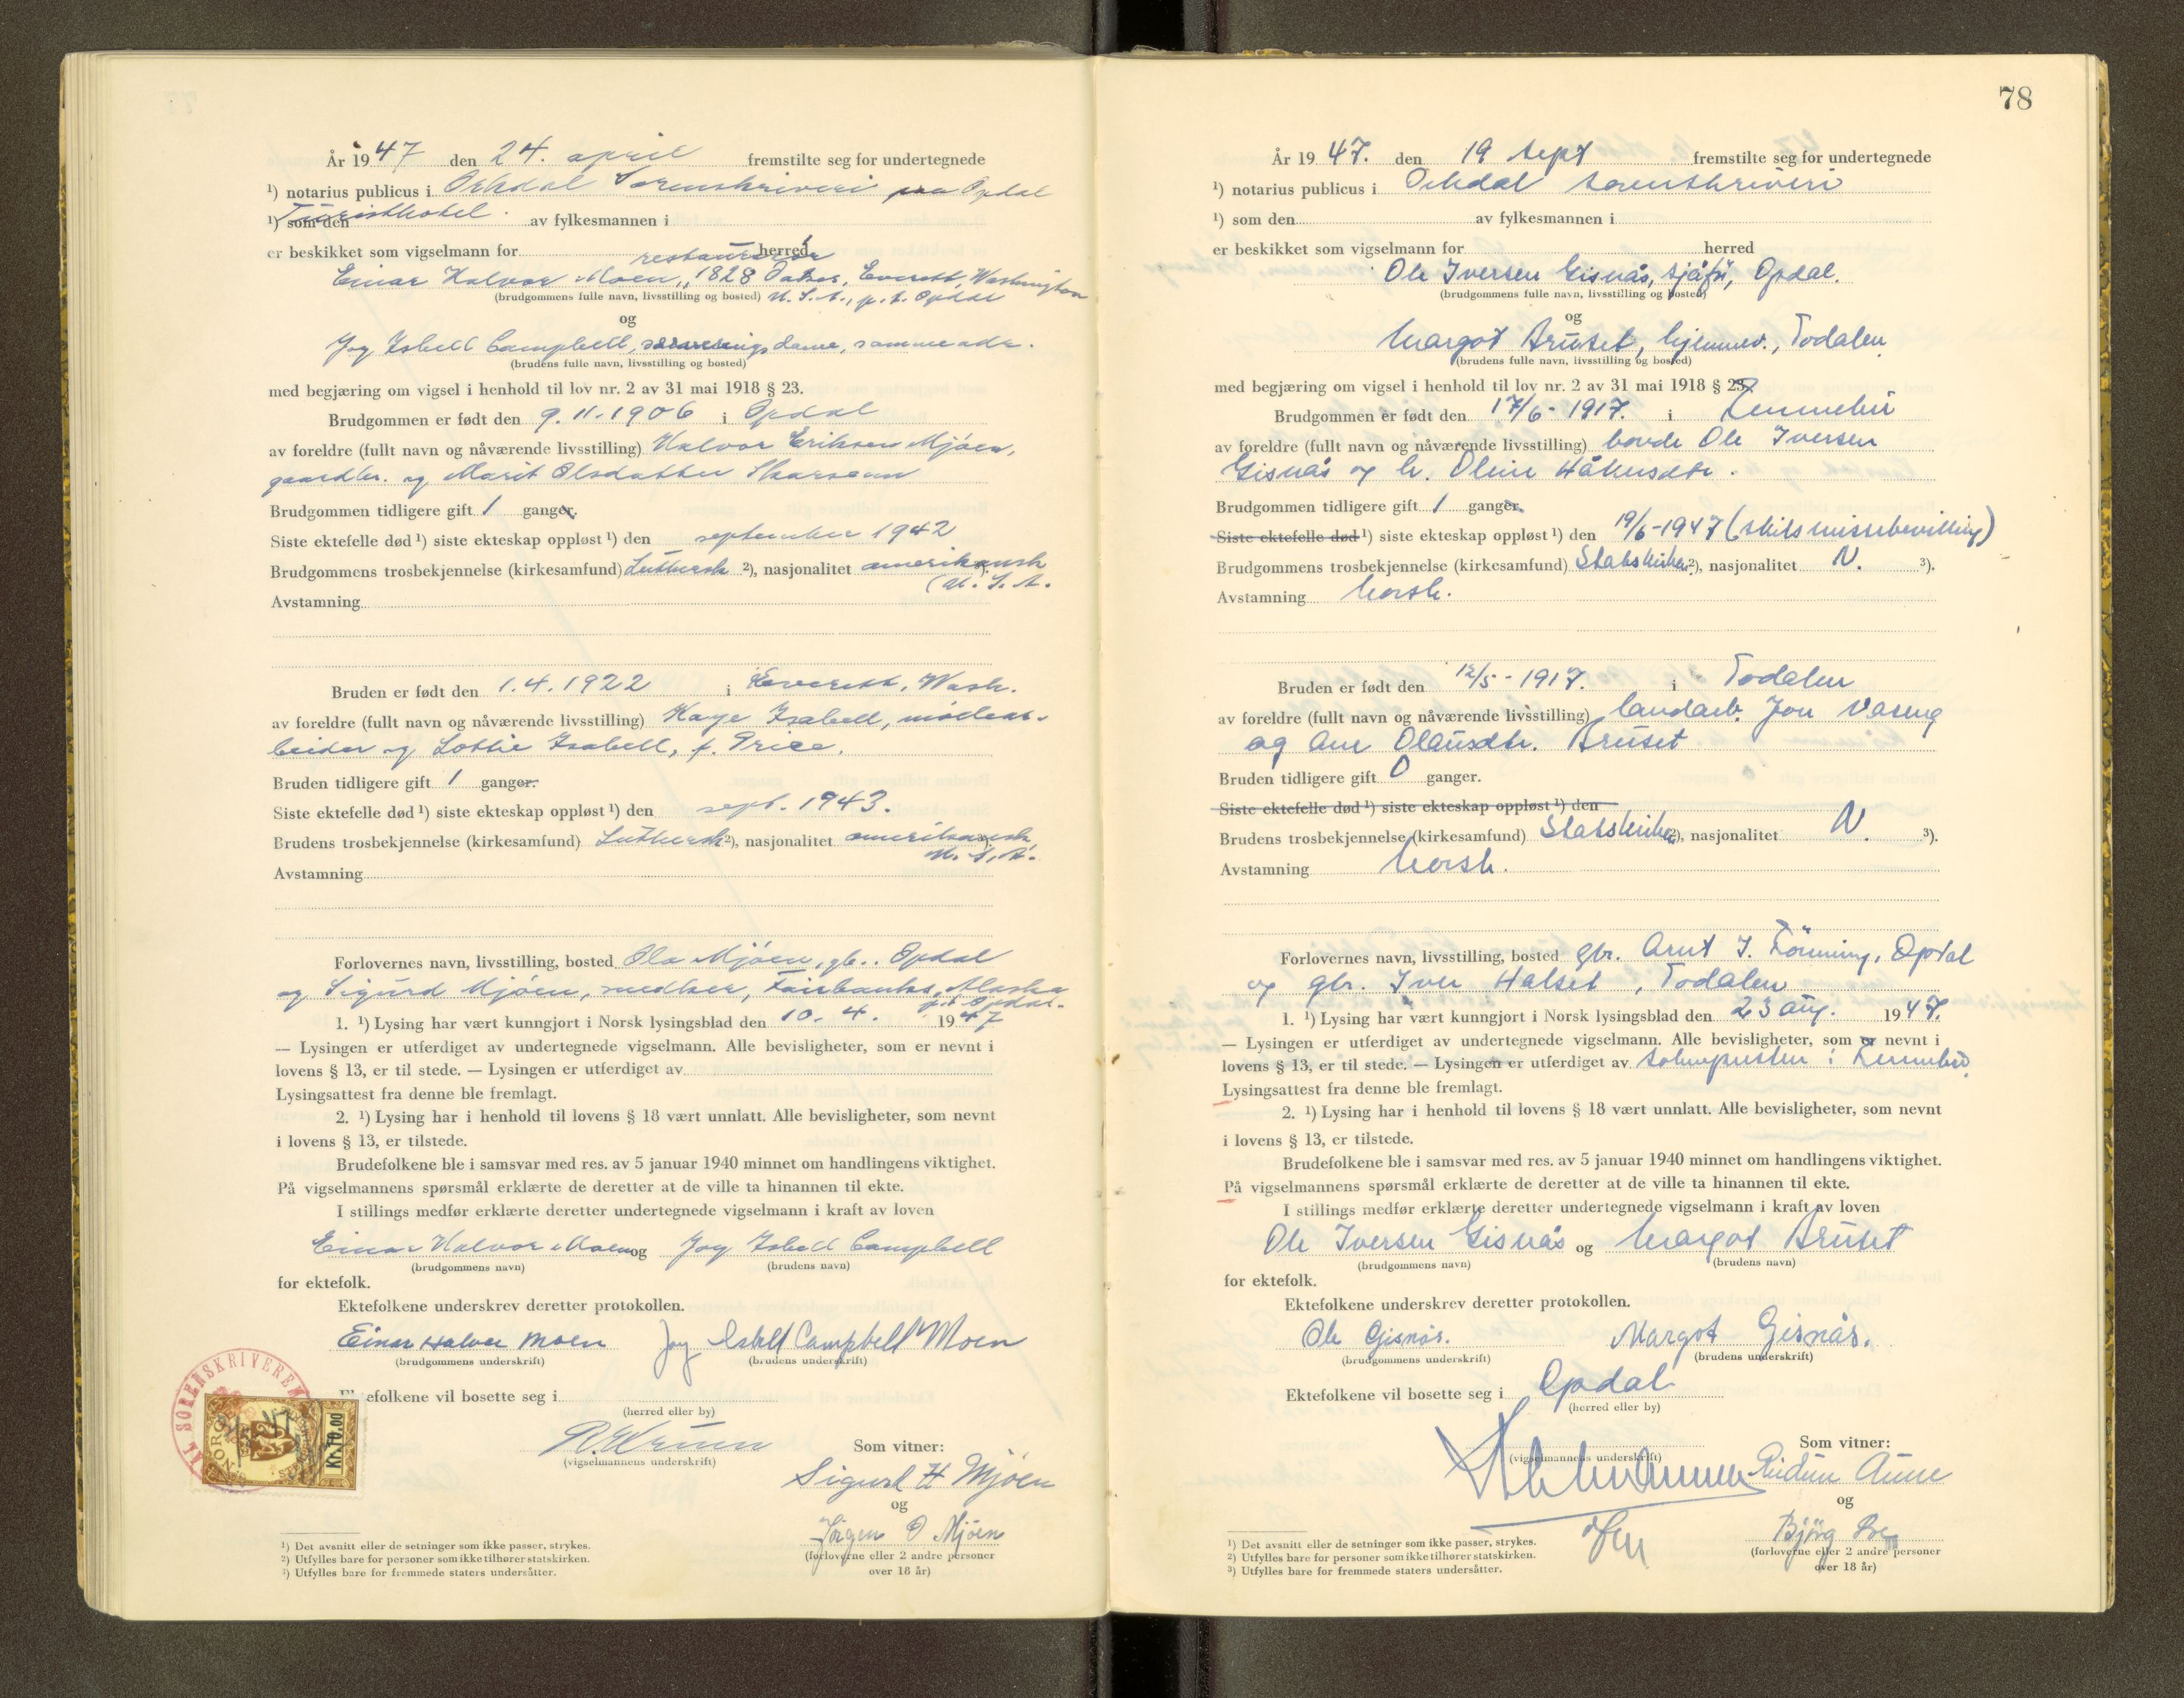 År 1947 den 24. april fremstilte seg for undertegnede
¹) notarius publicus i Orkdal Sorenskriveri paa Opdal
¹) som den Turisthotel. av fylkesmannen i
er beskikket som vigselmann for herred
restauratør
Einar Halvor Moen, 1828 Oakes, Everett, Washington
(brudgommens fulle navn, livsstilling og bosted) U. S. A., p. t. Opdal
og
Joy Isbell Campbell, serveringsdame, samme adr.
(brudens fulle navn, livsstilling og bosted)
med begjæring om vigsel i henhold til lov nr. 2 av 31 mai 1918 § 23.
Brudgommen er født den 9.11.1906 i Opdal
av foreldre (fullt navn og nåværende livsstilling) Halvor Eriksen Mjøen,
gaardbr. og Marit Olsdatter
Brudgommen tidligere gift 1 ganger.
Siste ektefelle død ¹) siste ekteskap oppløst ¹) den september 1942
Brudgommens trosbekjennelse (kirkesamfund) Luthersk ²), nasjonalitet amerikansk ³).
(U. S. A.
Avstamning
Bruden er født den 1.4.1922 i Everett, Wash.
av foreldre (fullt navn og nåværende livsstilling) Kaye Isabell, møllear-
beider og Lottie Isabell, f. Price.
Bruden tidligere gift 1 ganger.
Siste ektefelle død ¹) siste ekteskap oppløst ¹) den sept. 1943.
Brudens trosbekjennelse (kirkesamfund) Luthersk ²), nasjonalitet amerikansk ³).
U. S. A.
Avstamning
Forlovernes navn, livsstilling, bosted Ola Mjøen, gbr. Opdal
og Sigurd Mjøen, snedker, Fairbanks, Alaska
p.t. Opdal.
1. ¹) Lysing har vært kunngjort i Norsk lysingsblad den 10. 4. 1947
— Lysingen er utferdiget av undertegnede vigselmann. Alle bevisligheter, som er nevnt i
lovens § 13, er til stede. — Lysingen er utferdiget av
Lysingsattest fra denne ble fremlagt.
2. ¹) Lysing har i henhold til lovens § 18 vært unnlatt. Alle bevisligheter, som nevnt
i lovens § 13, er tilstede.
Brudefolkene ble i samsvar med res. av 5 januar 1940 minnet om handlingens viktighet.
På vigselmannens spørsmål erklærte de deretter at de ville ta hinannen til ekte.
I stillings medfør erklærte deretter undertegnede vigselmann i kraft av loven
Einar Halvor Moen og Joy Isbell Campbell
(brudgommens navn) (brudens navn)
for ektefolk.
Ektefolkene underskrev deretter protokollen.
Einar Halvor Moen Joy Isbell Campbell Moen
(brudgommens underskrift) (brudens underskrift)
efolkene vil bosette seg i
(herred eller by)
SORENSKRIVEREN
NORGE
Kr.10.00
(vigselmannens underskrift)
Som vitner:
Sigurd H Mjøen
og
Jørgen O Mjøen
(forloverne eller 2 andre personer
over 18 år)
¹) Det avsnitt eller de setninger som ikke passer, strykes.
²) Utfylles bare for personer som ikke tilhører statskirken.
³) Utfylles bare for fremmede staters undersåtter.
78
År 1947. den 19 sept fremstilte seg for undertegnede
¹) notarius publicus i Orkdal sorenskriveri
¹) som den av fylkesmannen i
er beskikket som vigselmann for herred
Ole Iversen Gisnås, sjåfør, Opdal.
(brudgommens fulle navn, livsstilling og bosted)
og
Margot Bruset, hjemmev., Todalen
(brudens fulle navn, livsstilling og bosted)
med begjæring om vigsel i henhold til lov nr. 2 av 31 mai 1918 § 23.
Brudgommen er født den 17/6-1917. i Rennebu
av foreldre (fullt navn og nåværende livsstilling) bonde Ole Iversen
Gisnås og h. Oline Håkensdtr.
Brudgommen tidligere gift 1 ganger.
Siste ektefelle død ¹) siste ekteskap oppløst ¹) den 19/6-1947 (skilsmissebevilling)
Brudgommens trosbekjennelse (kirkesamfund) Statskirken ²), nasjonalitet N. ³).
Avstamning Norsk.
Bruden er født den 12/5-1917. i Todalen
av foreldre (fullt navn og nåværende livsstilling) landarb. Jon Vaseng
og Ane Olausdtr. Bruset
Bruden tidligere gift 0 ganger.
Siste ektefelle død ¹) siste ekteskap oppløst ¹) den
Brudens trosbekjennelse (kirkesamfund) Statskirken ²), nasjonalitet N. ³).
Avstamning Norsk.
Forlovernes navn, livsstilling, bosted gbr. Arnt J. Rønning, Opdal
og gbr. Iver Halset, Todalen
1. ¹) Lysing har vært kunngjort i Norsk lysingsblad den 23 aug. 1947.
— Lysingen er utferdiget av undertegnede vigselmann. Alle bevisligheter, som er nevnt i
lovens § 13, er til stede. — Lysingen er utferdiget av soknepresten i Rennebu.
Lysingsattest fra denne ble fremlagt.
2. ¹) Lysing har i henhold til lovens § 18 vært unnlatt. Alle bevisligheter, som nevnt
i lovens § 13, er tilstede.
Brudefolkene ble i samsvar med res. av 5 januar 1940 minnet om handlingens viktighet.
På vigselmannens spørsmål erklærte de deretter at de ville ta hinannen til ekte.
I stillings medfør erklærte deretter undertegnede vigselmann i kraft av loven
Ole Iversen Gisnås og Margot Bruset
(brudgommens navn) (brudens navn)
for ektefolk.
Ektefolkene underskrev deretter protokollen.
Ole Gisnås. Margot Gisnås.
(brudgommens underskrift) (brudens underskrift)
Ektefolkene vil bosette seg i Opdal
(herred eller by)
(vigselmannens underskrift)
Som vitner:
Aune
og
Bjørg
(forloverne eller 2 andre personer
over 18 år)
¹) Det avsnitt eller de setninger som ikke passer, strykes.
²) Utfylles bare for personer som ikke tilhører statskirken.
³) Utfylles bare for fremmede staters undersåtter.